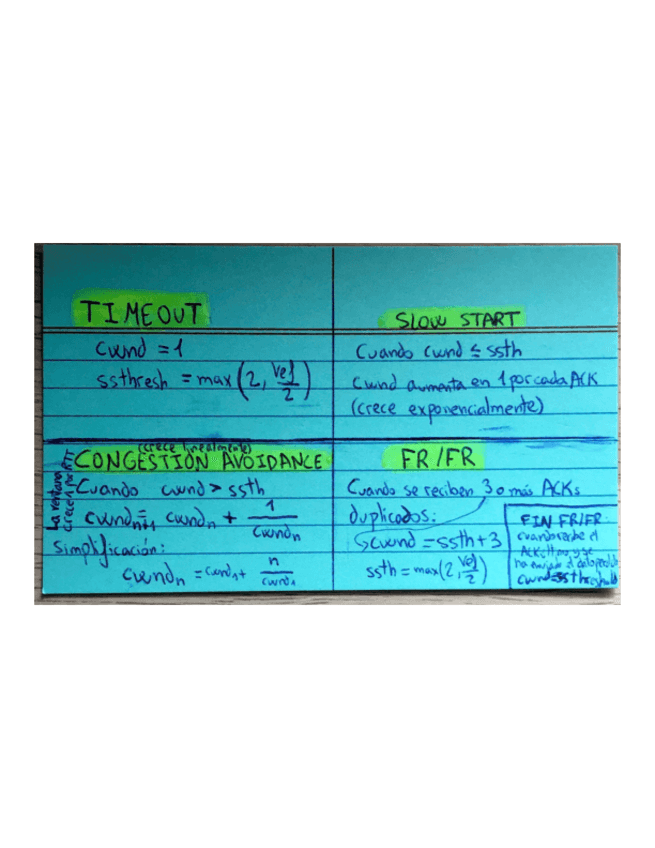 TIMEOUT
cwnd = 1
ssthresh = max(2, Vef/2)
SLOW START
Cuando cwnd ≤ ssth
cwnd aumenta en 1 por cada ACK
(crece exponencialmente)
(crece linealmente)
CONGESTIÓN AVOIDANCE
La ventana
crece 1 por RTT
Cuando cwnd > ssth
cwndn+1 = cwndn + 1/cwndn
Simplificación:
cwndn = cwnd1 + n/cwnd1
FR/FR
Cuando se reciben 3 o más ACKs
duplicados:
↳ cwnd = ssth + 3
ssth = max(2, Vef/2)
FIN FR/FR
cuando recibe el
ha enviado el dato perdido
cwnd = ssthreshold